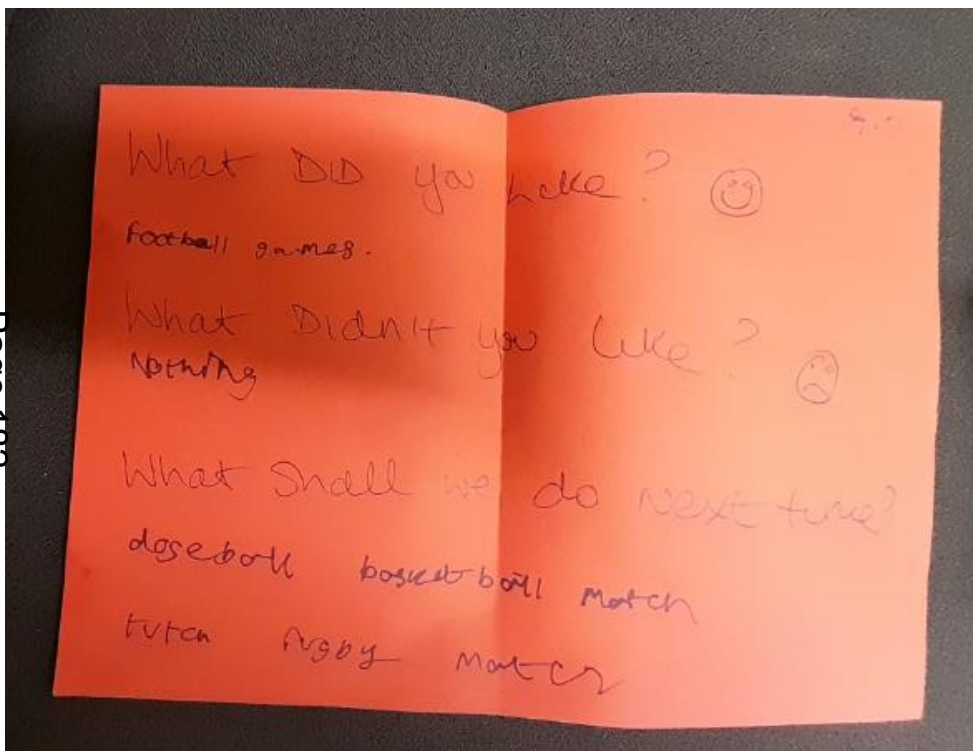 What DID you Like?
football games.
What Didn't you Like?
Nothing
What Shall we do Next time?
dogeball basketball match
tutch rugby match